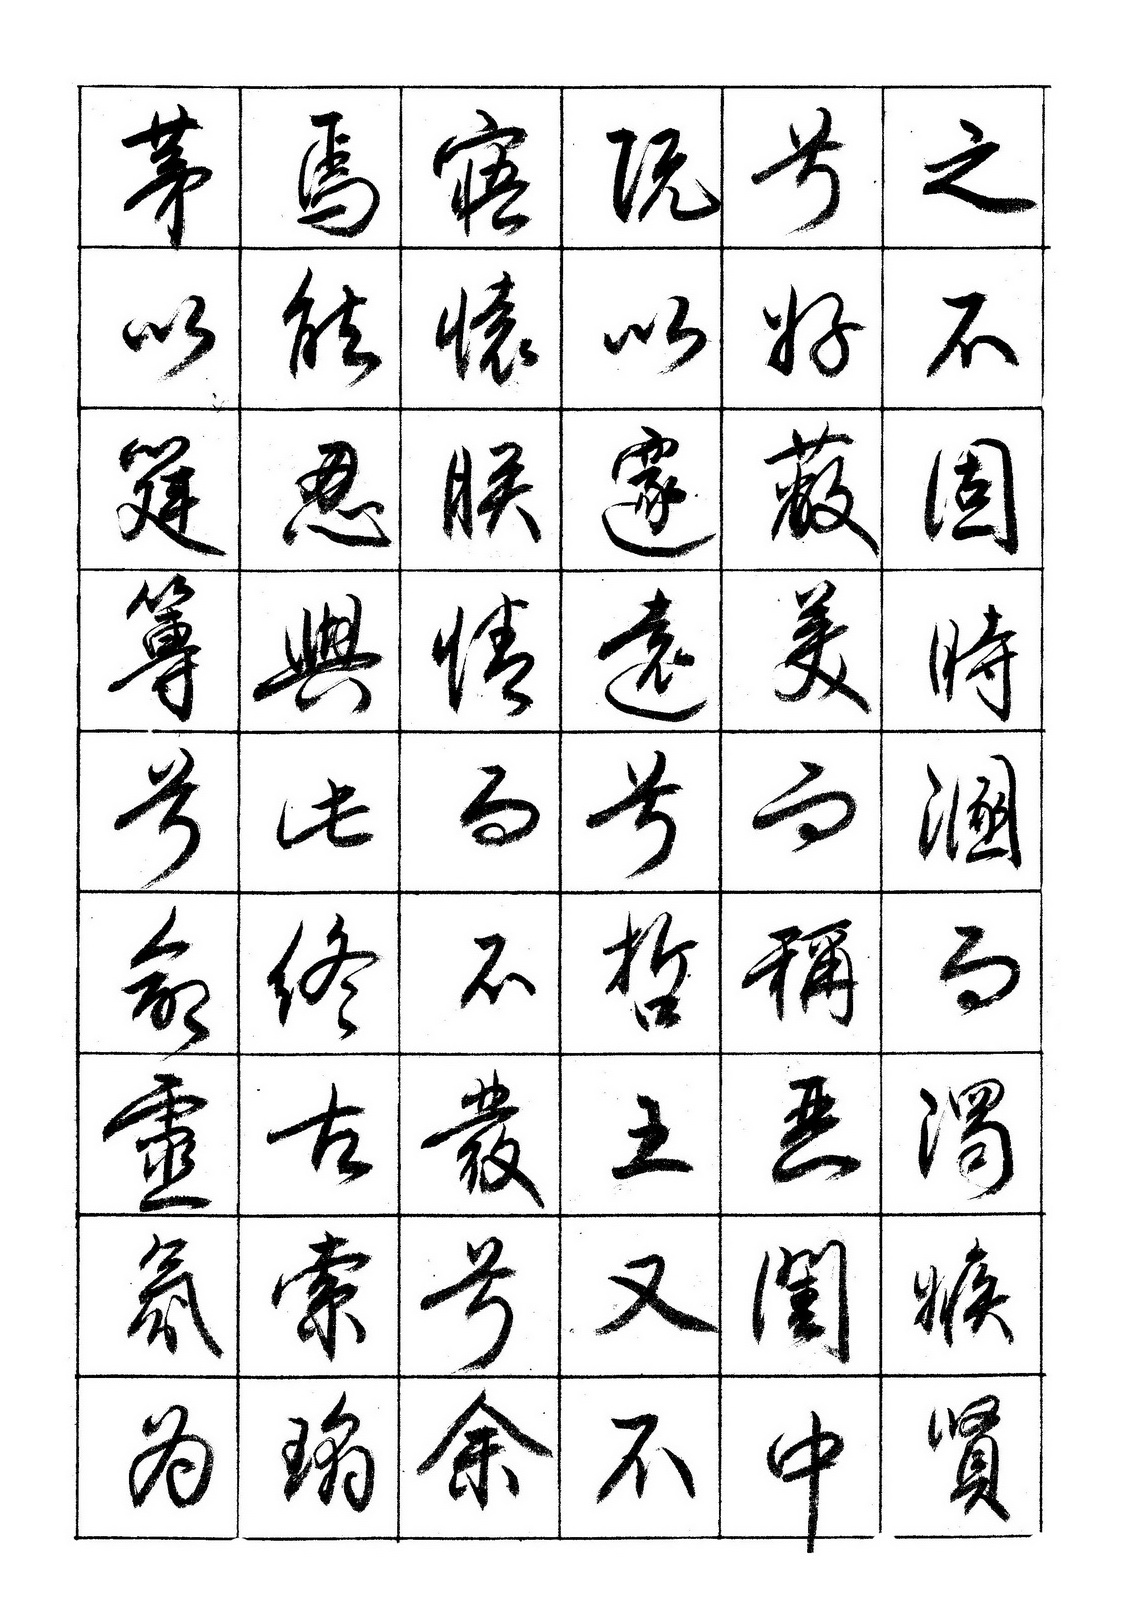 之不固時溷而濁嫉賢
兮好蔽美而稱惡閨中
既以邃遠兮哲王又不
寤懷朕情而不發兮余
焉能忍與此終古索璚
茅以筳篿兮命靈氛為